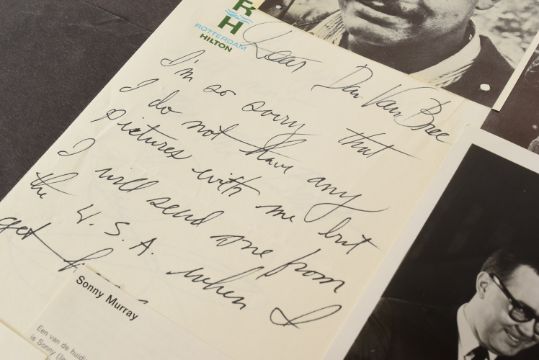 RH
ROTTERDAM
HILTON
Dear Dan Van Bree
I'm so sorry that
I do not have any
pictures with me but
I will send one from
the U.S.A. when I
get
Sonny Murray
Een van de huidi
is Sonny